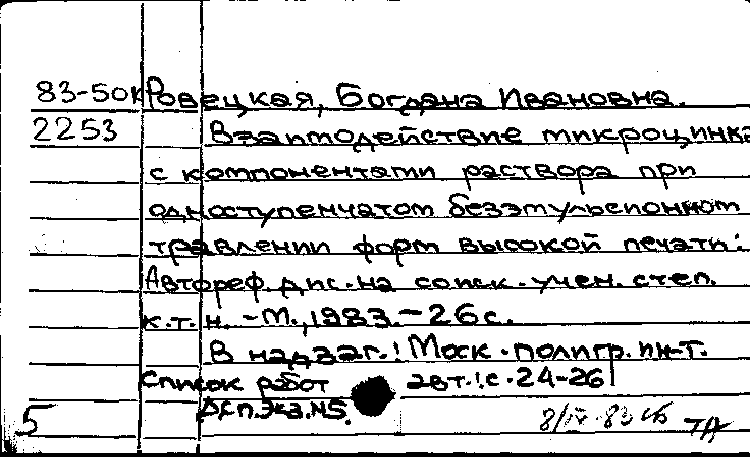 83-50к Ровецкая, Богдана Ивановна.
2253 Взаимодействие микроцинка
с компонентами раствора при
одноступенчатом безэмульсионном
травлении форм высокой печати:
Автореф. дис. на соиск. учен. степ.
к.т.н. - М., 1983. - 26 с.
В надзаг.: Моск. полигр. ин-т.
Список работ авт.: с. 24-26
ДСП. Экз. №5.
5 8/IV-83